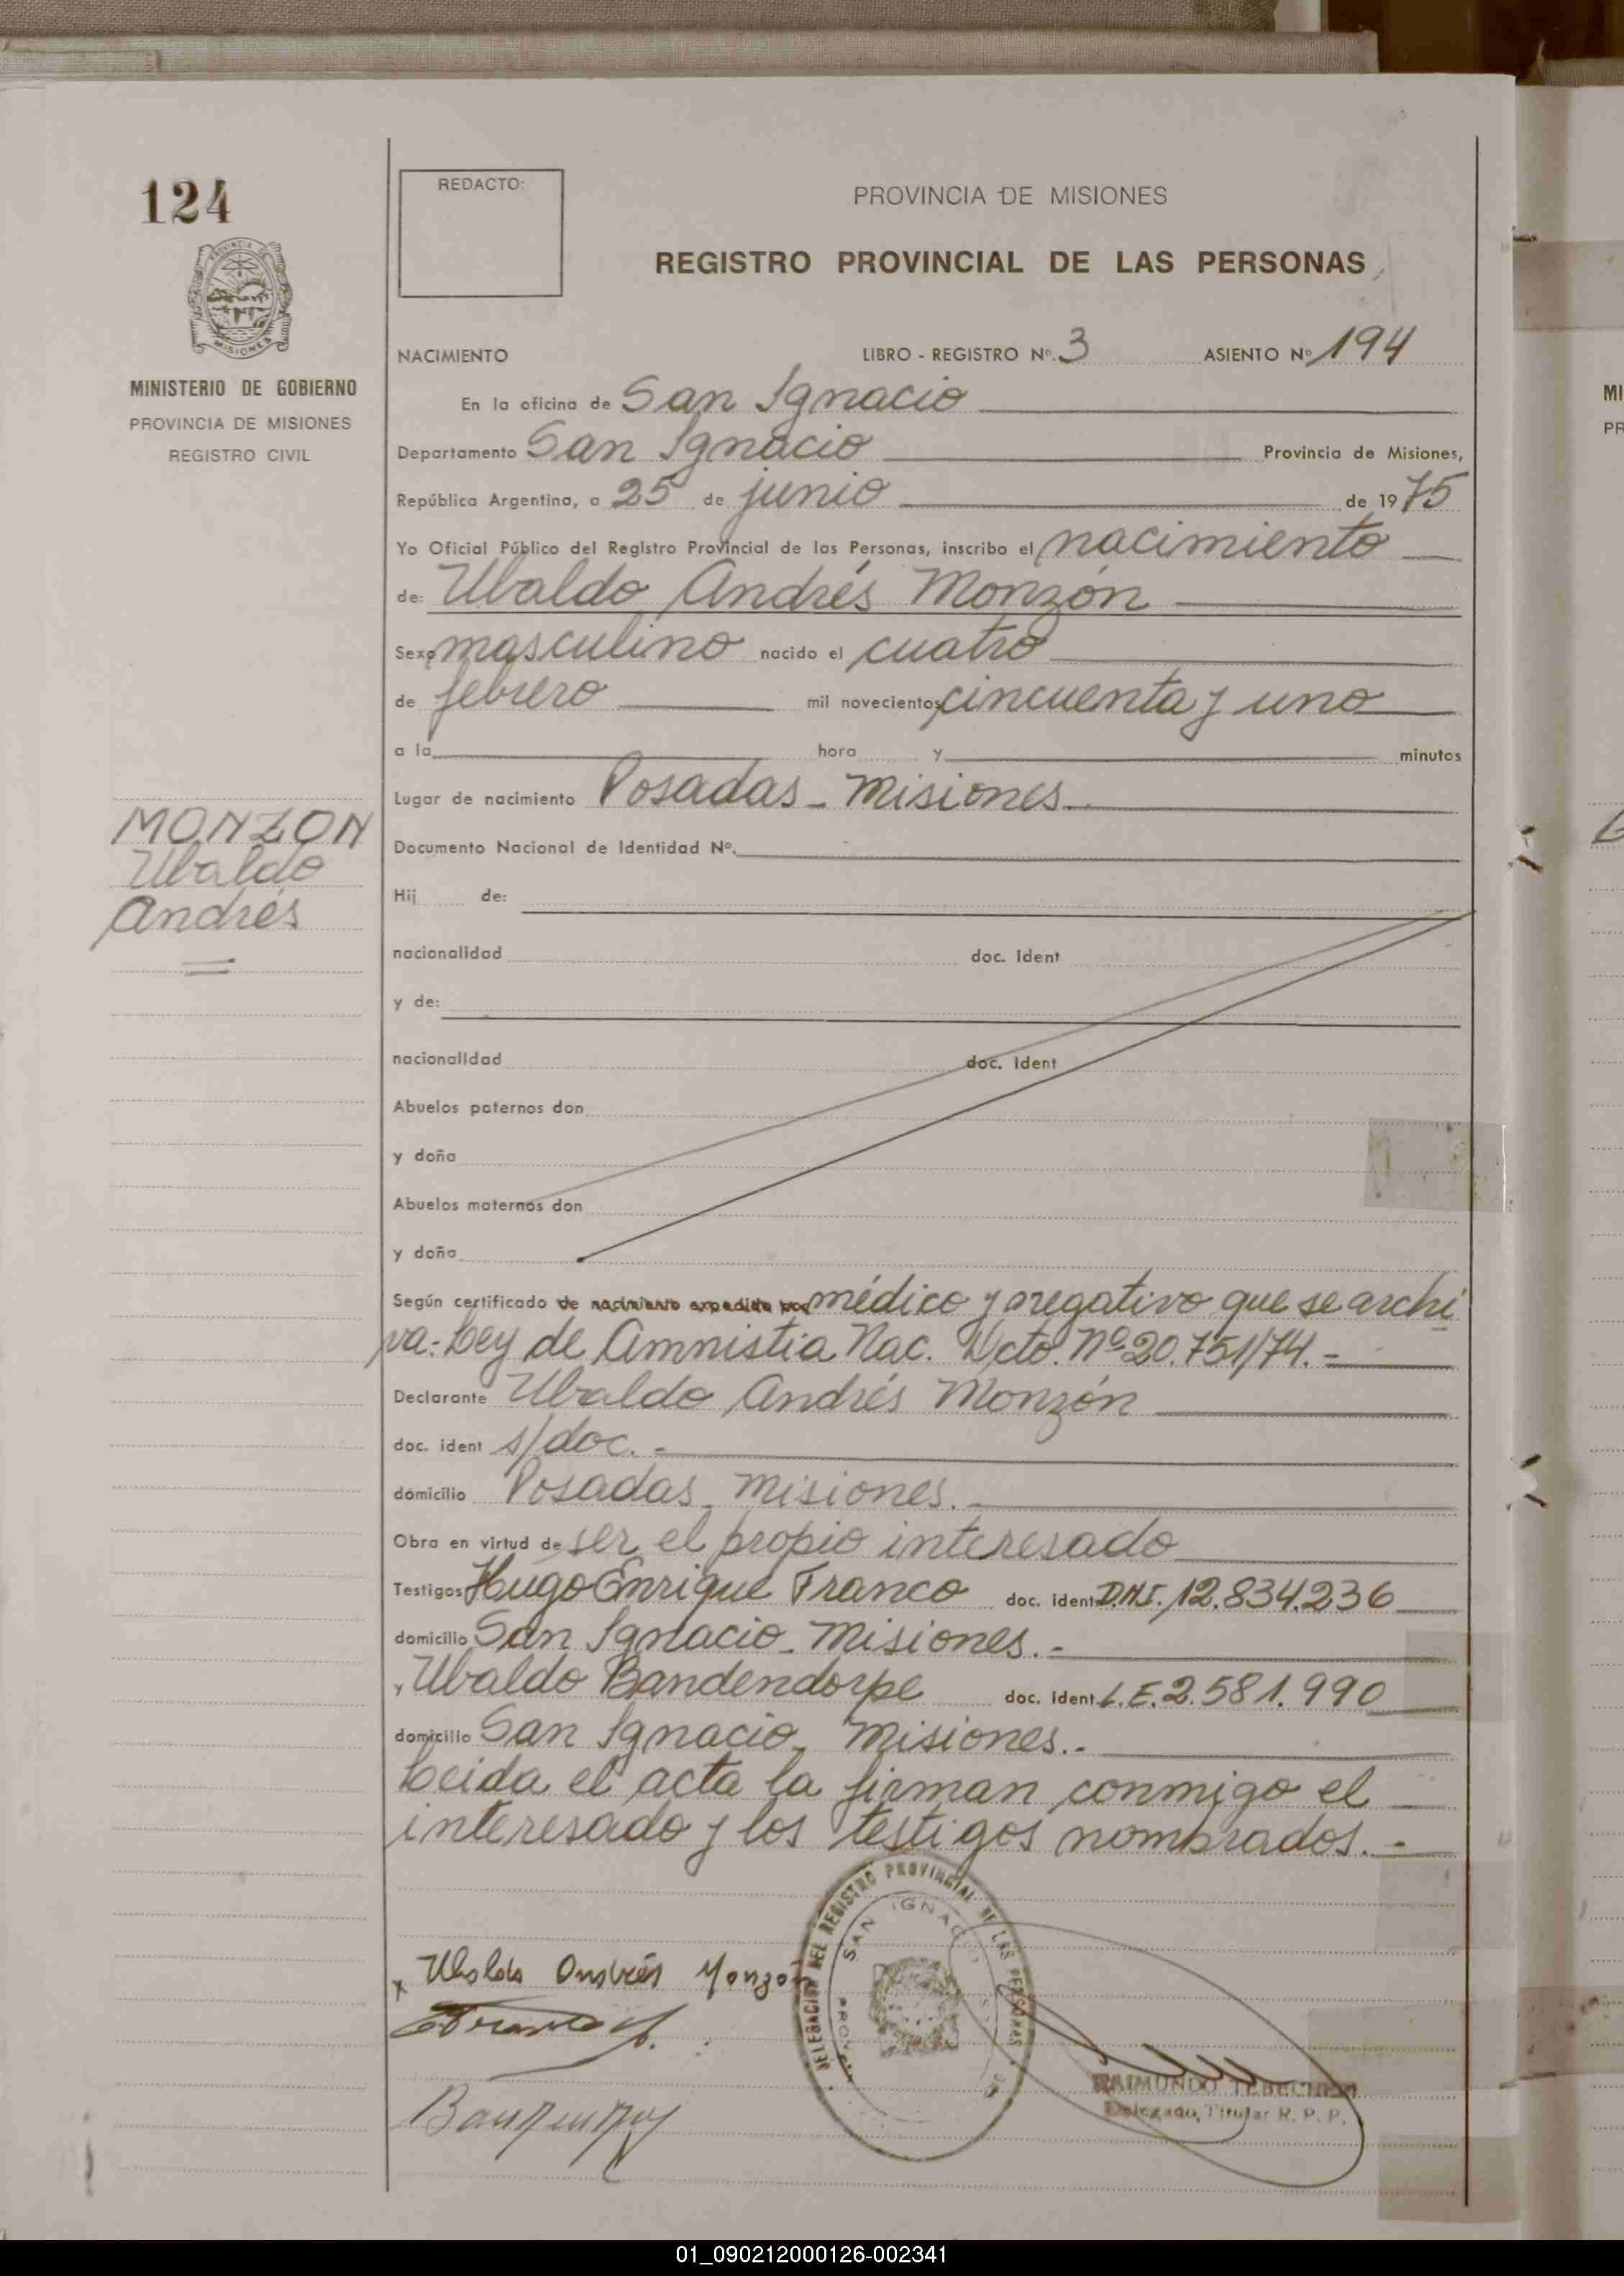 124
REDACTO:
PROVINCIA DE MISIONES
REGISTRO PROVINCIAL DE LAS PERSONAS
MISIONES
MINISTERIO DE GOBIERNO
PROVINCIA DE MISIONES
REGISTRO CIVIL
NACIMIENTO LIBRO - REGISTRO Nº. 3 ASIENTO Nº 194
En la oficina de San Ignacio
Departamento San Ignacio Provincia de Misiones,
República Argentina, a 25 de junio de 1975
Yo Oficial Público del Registro Provincial de las Personas, inscribo el nacimiento
de: Ubaldo Andrés Monzón
Sexo masculino nacido el cuatro
de febrero mil novecientos cincuenta y uno
a la hora y minutos
Lugar de nacimiento Posadas - Misiones
MONZON
Ubaldo
Andrés
Documento Nacional de Identidad Nº.
Hij de:
nacionalidad doc. Ident
y de:
nacionalidad doc. Ident
Abuelos paternos don
y doña
Abuelos maternos don
y doña
Según certificado de nacimiento expedido por médico y negativo que se archi
va: Ley de Amnistia Nac. Dcto. Nº 20.751/74. -
Declarante Ubaldo Andrés Monzón
doc. ident s/doc. -
domicilio Posadas - Misiones. -
Obra en virtud de ser el propio interesado
Testigos Hugo Enrique Franco doc. ident D.N.I. 12.834.236
domicilio San Ignacio - Misiones. -
, Ubaldo Bandendorpe doc. Ident L.E. 2.581.990
domicilio San Ignacio - Misiones. -
Leida el acta la firman conmigo el
interesado y los testigos nombrados. -
DELEGACION DEL REGISTRO PROVINCIAL DE LAS PERSONAS
SAN IGNACIO
x Ubaldo Andrés Monzón
RAIMUNDO
Delegado Titular R. P. P.
MI
PR
01_090212000126-002341